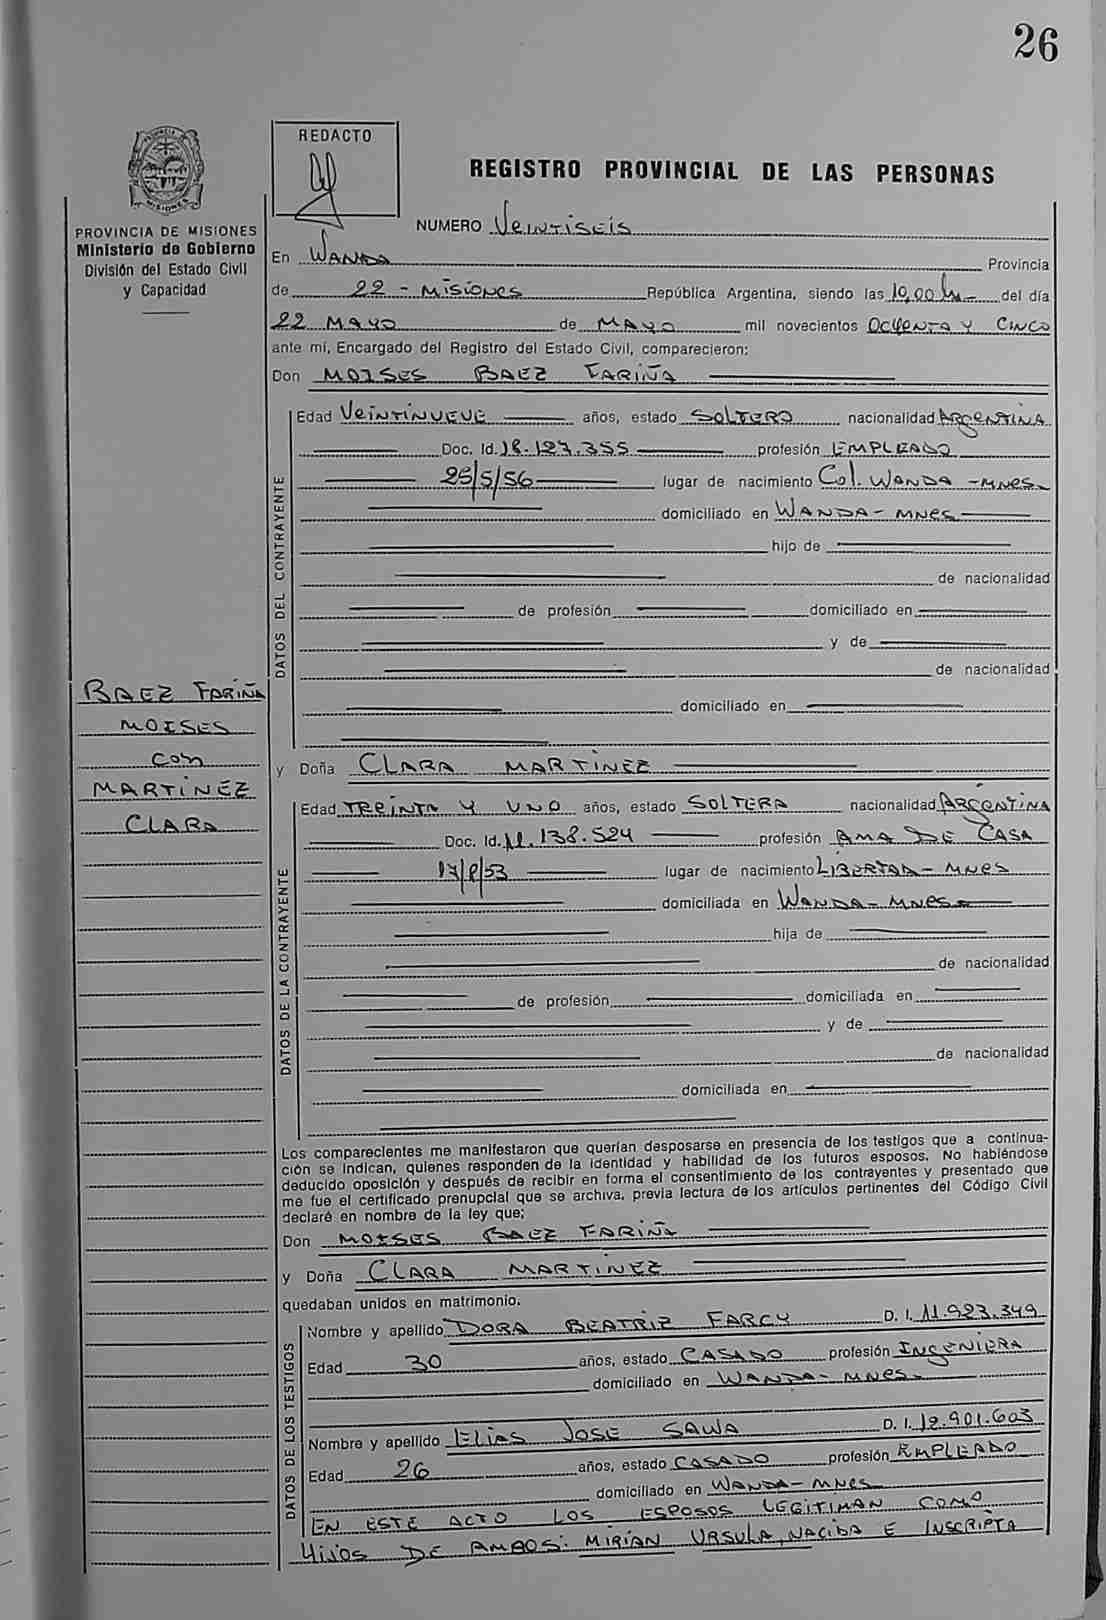 26
REDACTO
REGISTRO PROVINCIAL DE LAS PERSONAS
PROVINCIA DE MISIONES
Ministerio de Gobierno
División del Estado Civil
y Capacidad
NUMERO Veintiseis
En Wanda Provincia
de 22 - Misiones República Argentina, siendo las 10,00 hs del día
22 Mayo de Mayo mil novecientos Ochenta y Cinco
ante mí, Encargado del Registro del Estado Civil, comparecieron:
Don MOISES BAEZ FARIÑA
DATOS DEL CONTRAYENTE
Edad Veintinueve años, estado SOLTERO nacionalidad Argentina
Doc. Id. 18.127.355 profesión EMPLEADO
25/5/56 lugar de nacimiento Col. Wanda - Mnes.
domiciliado en Wanda - Mnes
hijo de
de nacionalidad
de profesión domiciliado en
y de
de nacionalidad
domiciliado en
BAEZ FARIÑA
MOISES
con
MARTINEZ
CLARA
y Doña CLARA MARTINEZ
DATOS DE LA CONTRAYENTE
Edad Treinta y uno años, estado SOLTERA nacionalidad Argentina
Doc. Id. 11.138.524 profesión AMA DE CASA
lugar de nacimiento Libertad - Mnes
domiciliada en Wanda - Mnes
hija de
de nacionalidad
de profesión domiciliada en
y de
de nacionalidad
domiciliada en
Los comparecientes me manifestaron que querían desposarse en presencia de los testigos que a continua-
ción se indican, quienes responden de la identidad y habilidad de los futuros esposos. No habiéndose
deducido oposición y después de recibir en forma el consentimiento de los contrayentes y presentado que
me fue el certificado prenupcial que se archiva, previa lectura de los artículos pertinentes del Código Civil
declaré en nombre de la ley que;
Don MOISES BAEZ FARIÑA
y Doña CLARA MARTINEZ
quedaban unidos en matrimonio.
DATOS DE LOS TESTIGOS
Nombre y apellido DORA BEATRIZ FARCY D. I. 11.923.349
Edad 30 años, estado CASADO profesión INGENIERA
domiciliado en Wanda - Mnes.
Nombre y apellido ELIAS JOSE SAWA D. I. 12.901.603
Edad 26 años, estado CASADO profesión EMPLEADO
domiciliado en Wanda - Mnes
EN ESTE ACTO LOS ESPOSOS LEGITIMAN COMO
HIJOS DE AMBOS: MIRIAN URSULA, NACIDA E INSCRIPTA